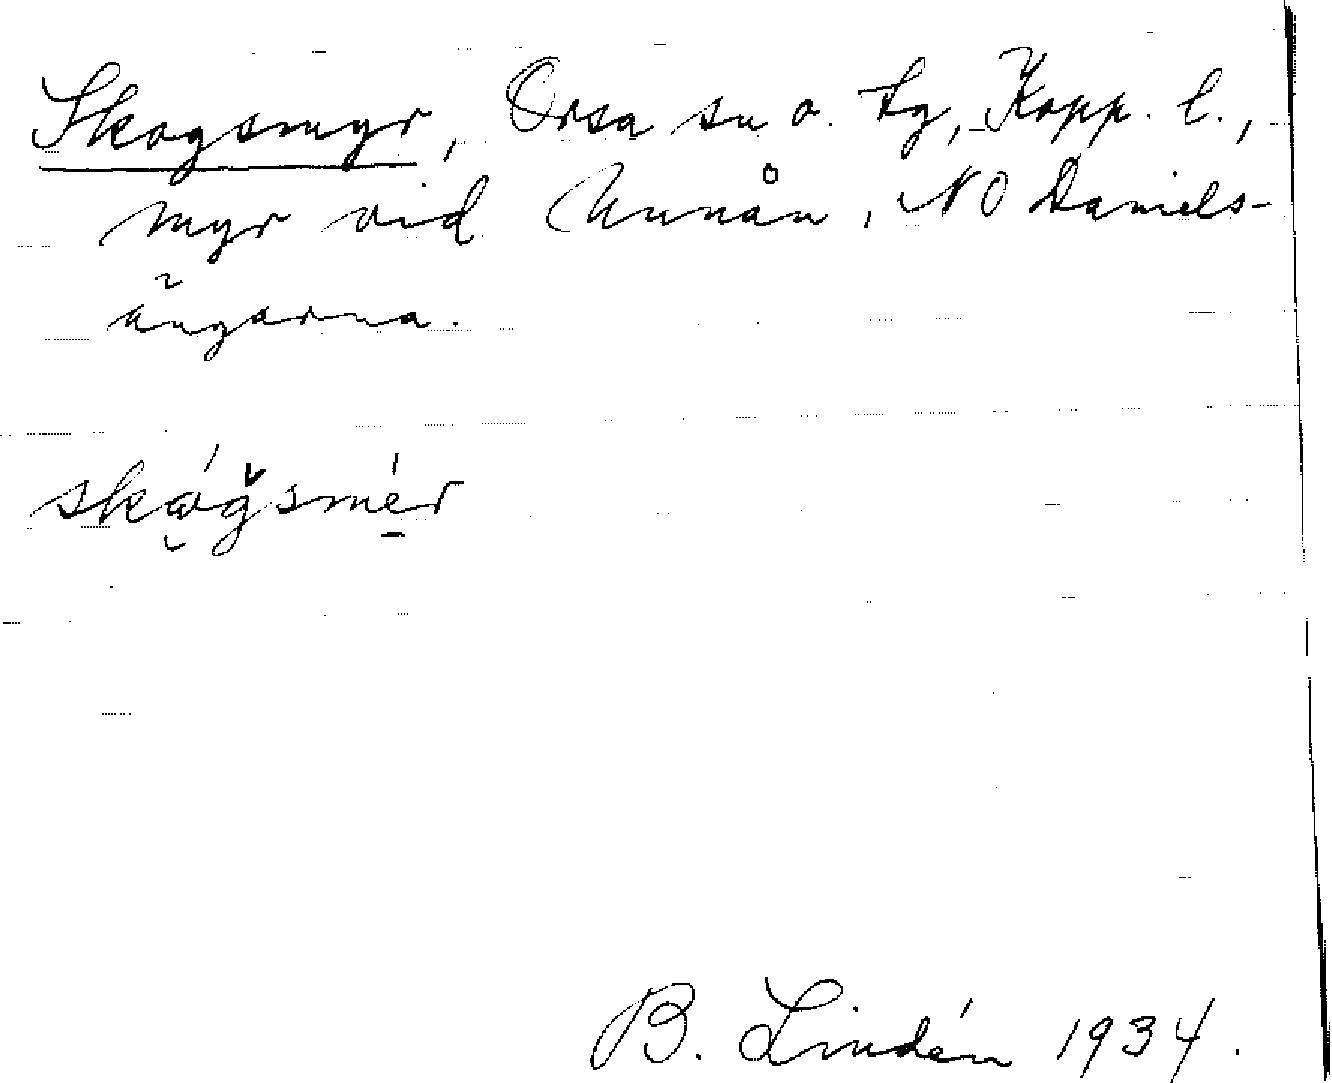 Skogsmyr, Orsa sn o. tg, Kopp. l.,
myr vid Unnån, NO Daniels-
ängarna.
skógsmér
B. Lindén 1934.